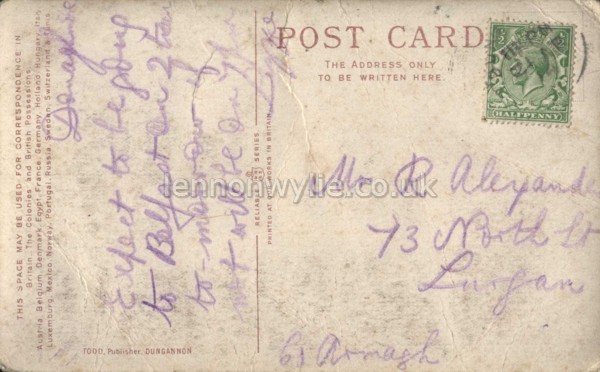 POST CARD
THE ADDRESS ONLY
TO BE WRITTEN HERE.
HALFPENNY
THIS SPACE MAY BE USED FOR CORRESPONDENCE IN
Gt. Britain, The Colonies and British Possessions,
Austria, Belgium, Denmark, Egypt, France, Germany, Holland, Hungary, Italy
Luxemburg, Mexico, Norway, Portugal, Russia, Sweden, Switzerland & Tunis
Donaghmore
Expect to be going
to Belfast on 2 train
to-morrow
will be on
RELIABLE SERIES.
PRINTED AT OUR WORKS IN BRITAIN
Mr R Alexander
73 North St
Lurgan
Co Armagh
TODD, Publisher, DUNGANNON
lennonwylie.co.uk